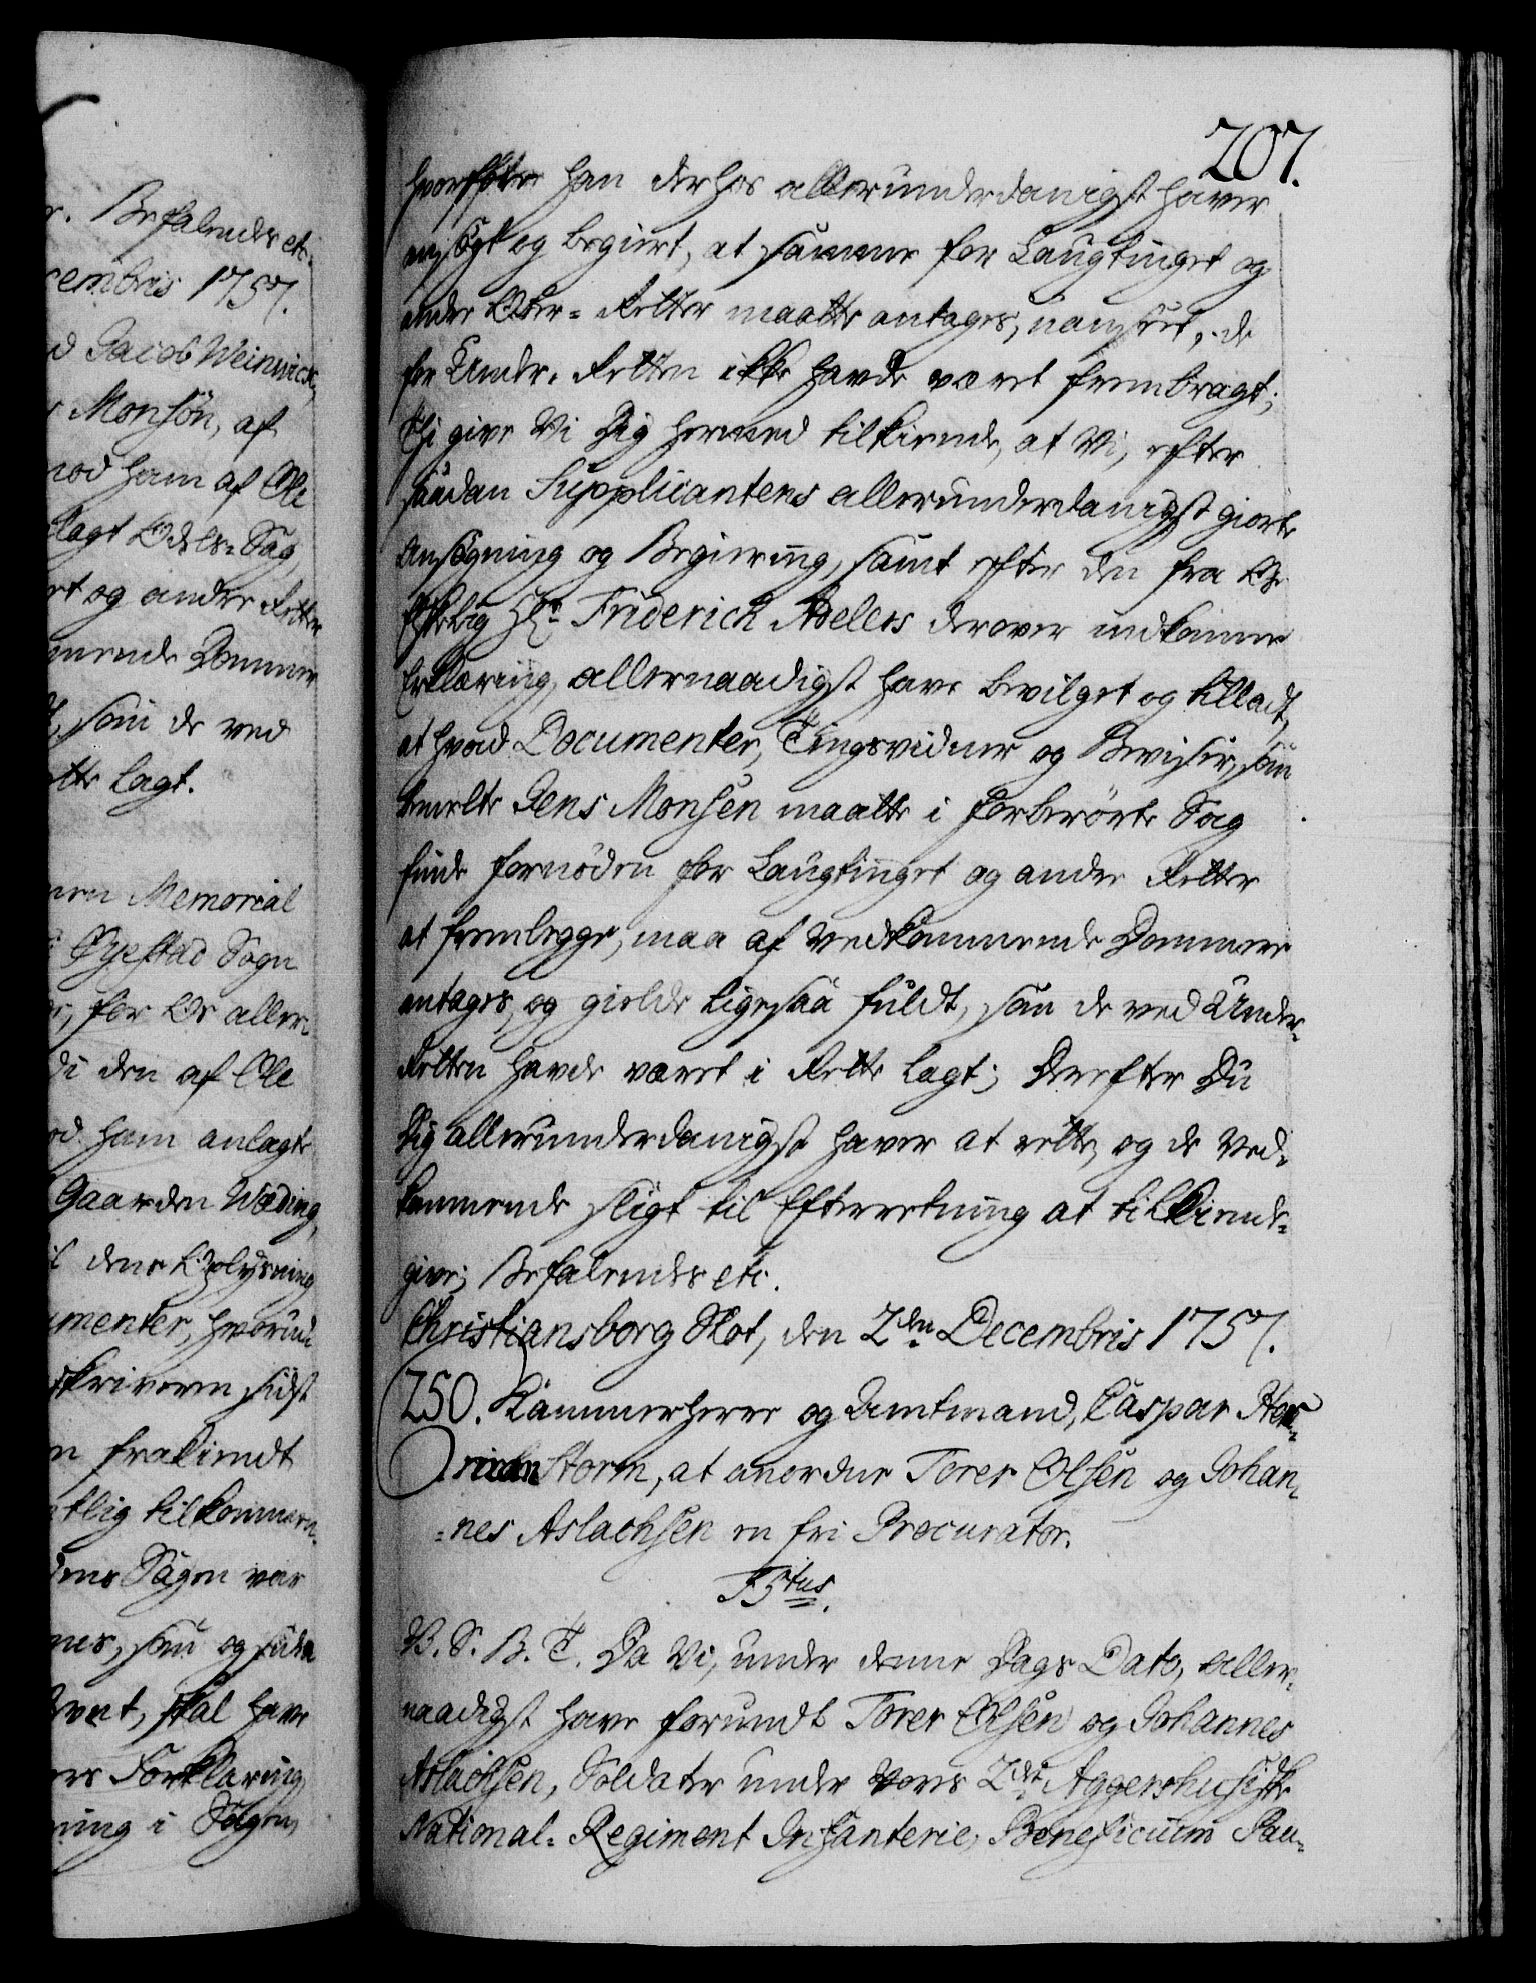 r. Befalendes etc.
cembris 1757.
d Jacob Weinwich,
Monsøn, af
mod ham af Ole
lagt Odels-Sag
rt og andre Retter
mende Dommer
som de ved
ette lagt.
nen Memorial
Øyestad Sogn
for Os aller-
di den af Ole
od ham anlagte
Gaarden Wæding,
dens Oplysning
umenter, hvorum
skriveren sidst
n frakiendt
tlig tilkommen-
Sagen var
mes, som og siden
skal have
Forklaring
ning i Sagen
207.
hvorfore han derhos allerunderdanigst haver
ansøgt og begiert, at samme for Laugtinget og
andre Over-Retter maatte antages, uanseet, de
for Under-Retten ikke havde været frembragt;
Thi give Vi Dig hermed tilkiende, at Vi, efter
saadan Supplicantens allerunderdanigst giorte
Ansøgning og Begiering, samt efter den fra Os
elskelig Hr. Friderich Adelers derover indkomne
Erklæring, allernaadigst have bevilget og tilladt,
at hvad Documenter, Tingsvidner og Beviser, som
bemelte Jens Monsen maatte i forberørte Sag
finde fornøden for Laugtinget og andre Retter
at fremlegge, maa af Vedkommende Dommere
antages, og gielde ligesaa fuldt, som de ved Under-
Retten havde været i Rette lagt; Derefter Du
Dig allerunderdanigst haver at rette, og de Ved-
kommende sligt til Efterretning at tilkiende-
give; Befalendes etc.
Christiansborg Slot, den 2den Decembris 1757.
250. Kammerherre og Amtmand, Caspar Her-
Storm, at anordne Torer Olsen og Johan-
=nes Aslachsen en fri Procurator.
F5tus.
V. S. B. T. Da Vi, under denne Dags Dato, aller-
naadigst have forundt Torer Olsen og Johannes
Aslachsen, Soldater under Vores 2det Aggershusiske
National-Regiment Infanterie, Beneficium Pau-